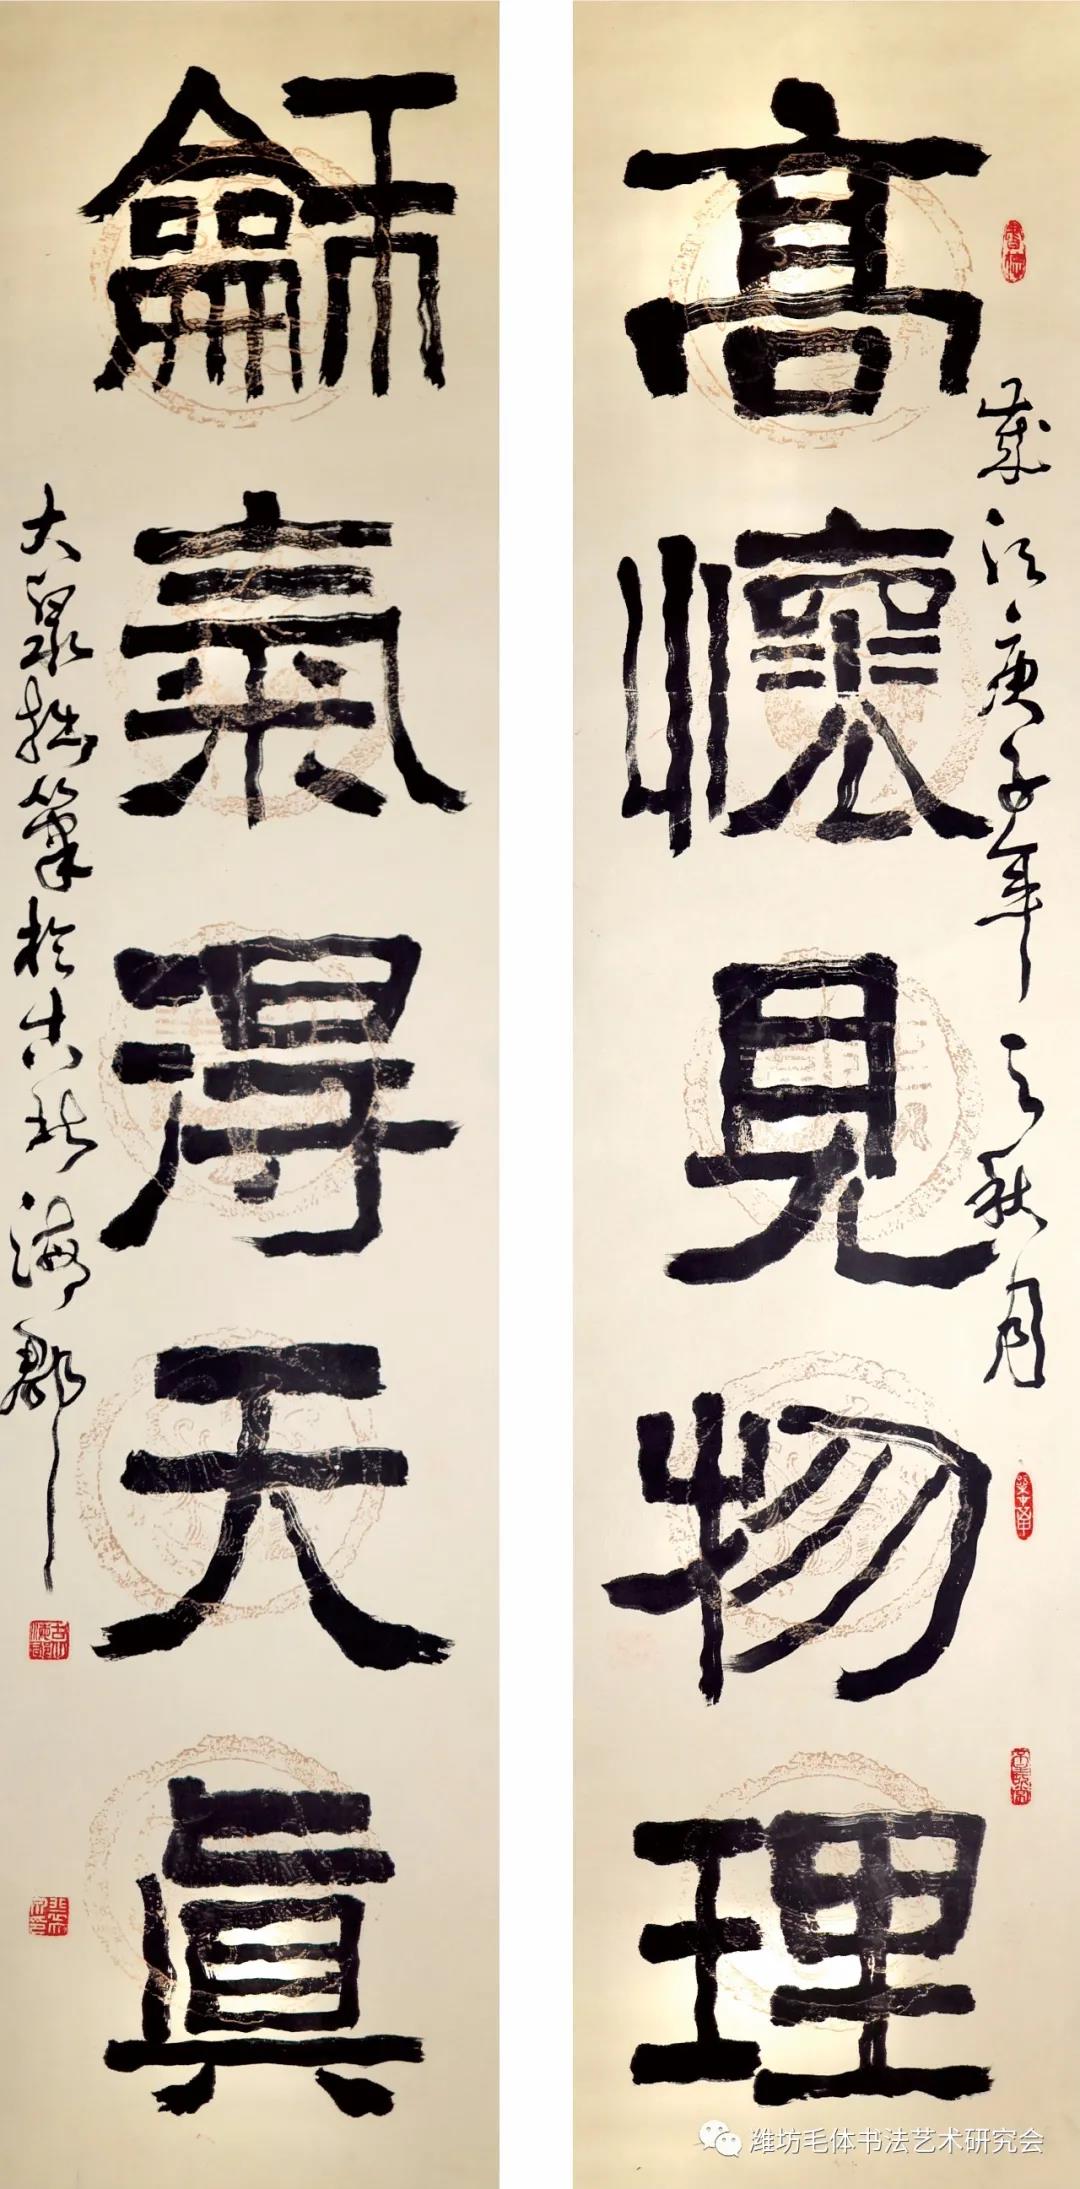 高懷見物理
歲次庚子年之秋月
龢氣得天真
大泉拙筆於古北海郡
潍坊毛体书法艺术研究会